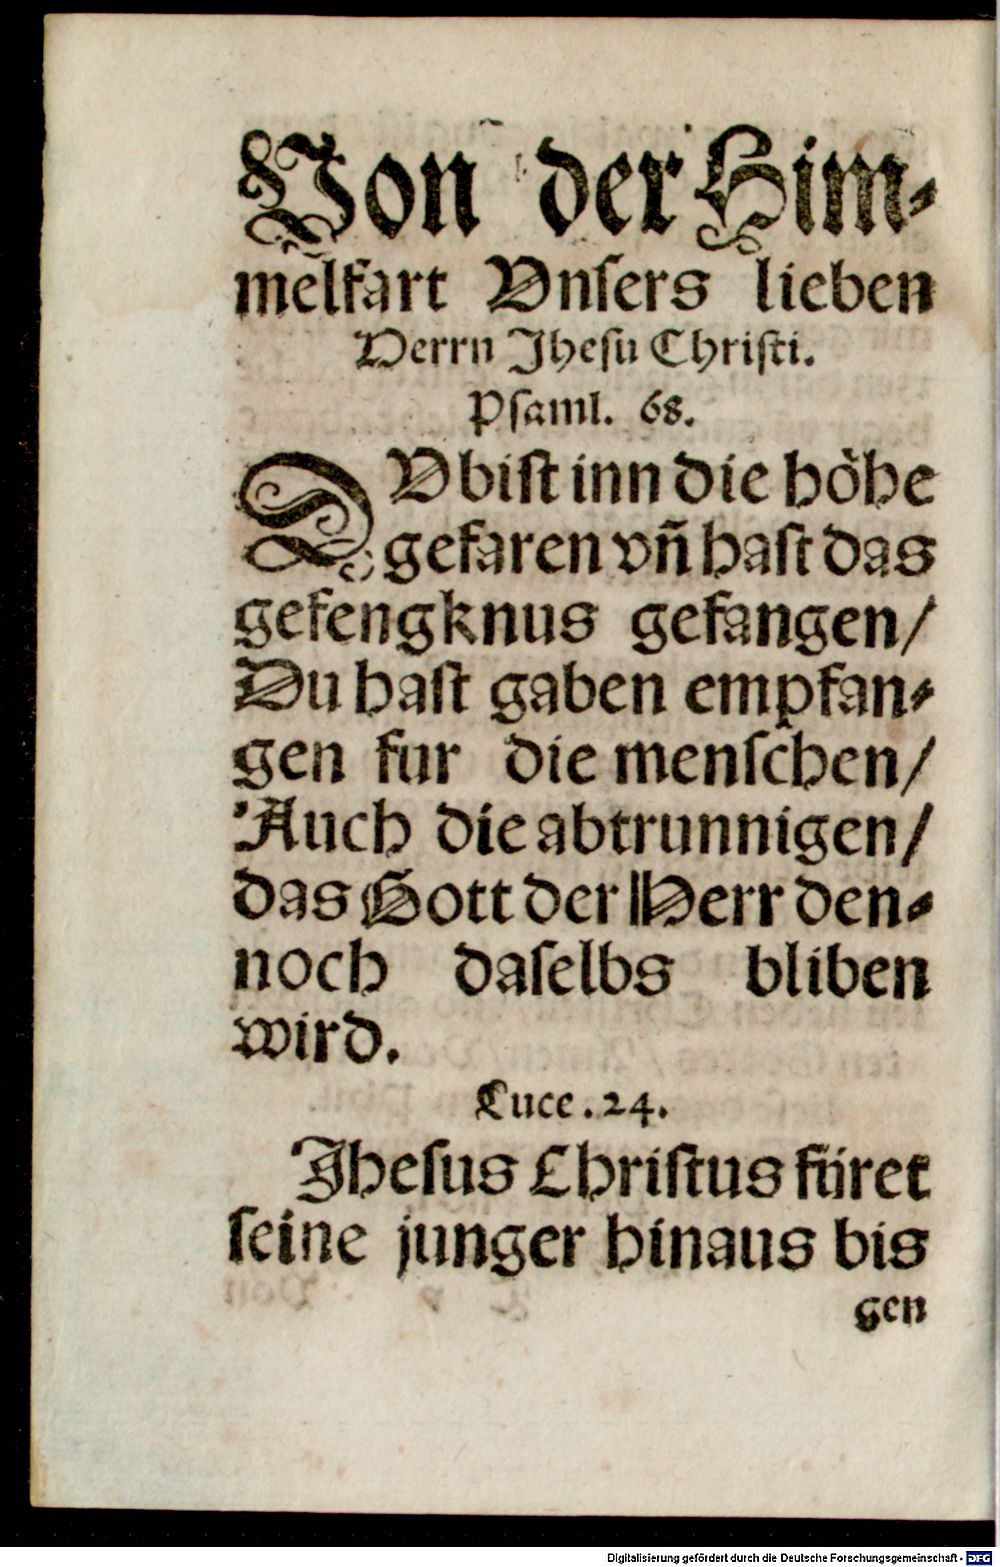 Von der Him-
melfart Vnsers lieben
Herrn Jhesu Christi.
Psaml. 68.
DV bist inn die höhe
gefaren vñ hast das
gefengknus gefangen/
Du hast gaben empfan-
gen fur die menschen/
Auch die abtrunnigen/
das Gott der Herr den-
noch daselbs bliben
wird.
Luce .24.
Jhesus Christus füret
seine junger hinaus bis
gen
Digitalisierung gefördert durch die Deutsche Forschungsgemeinschaft - DFG